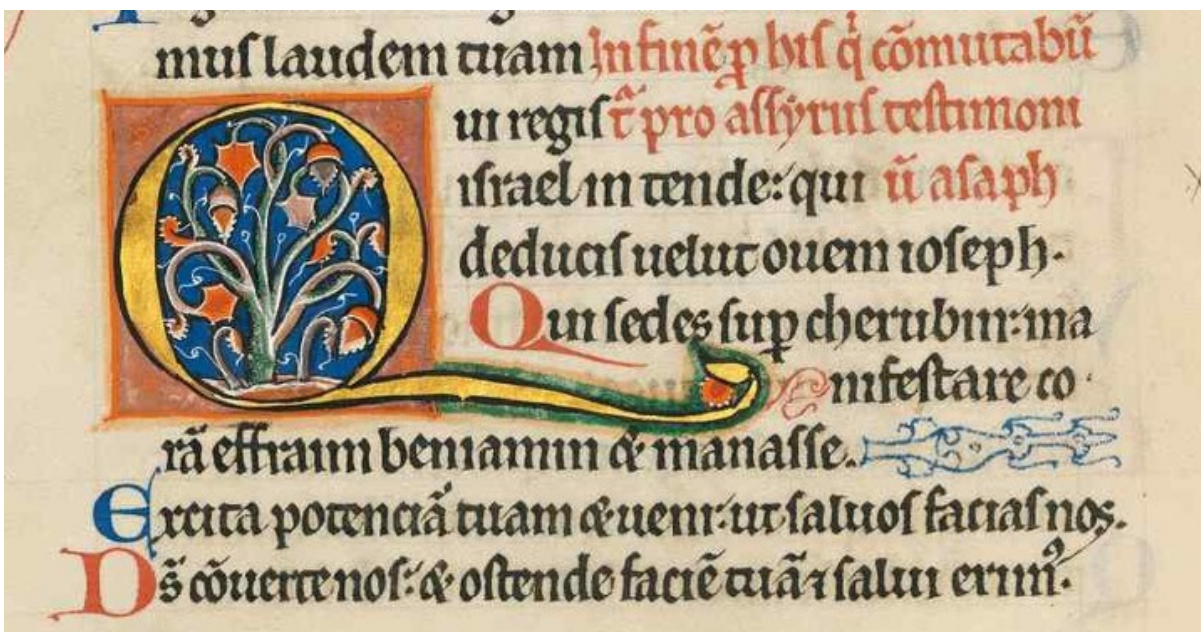 muſ laudem tuam In finē ꝓ hiſ qͥ cōmutabū
Qui regiſ t᷑ pro aſſyriiſ teſtimoni
iſrael in tende: qui ū aſaph
deduciſ uelut ouem ioſeph.
Qui ſedes ſuꝑ cherubin: ma
nifeſtare co
rā effraim beniamin & manaſſe.
Excita potenciā tuam & ueni: ut ſaluoſ faciaſ nos.
Dſ̄ cōuerte nos: & oſtende faciē tuā ⁊ ſalui erimꝰ.